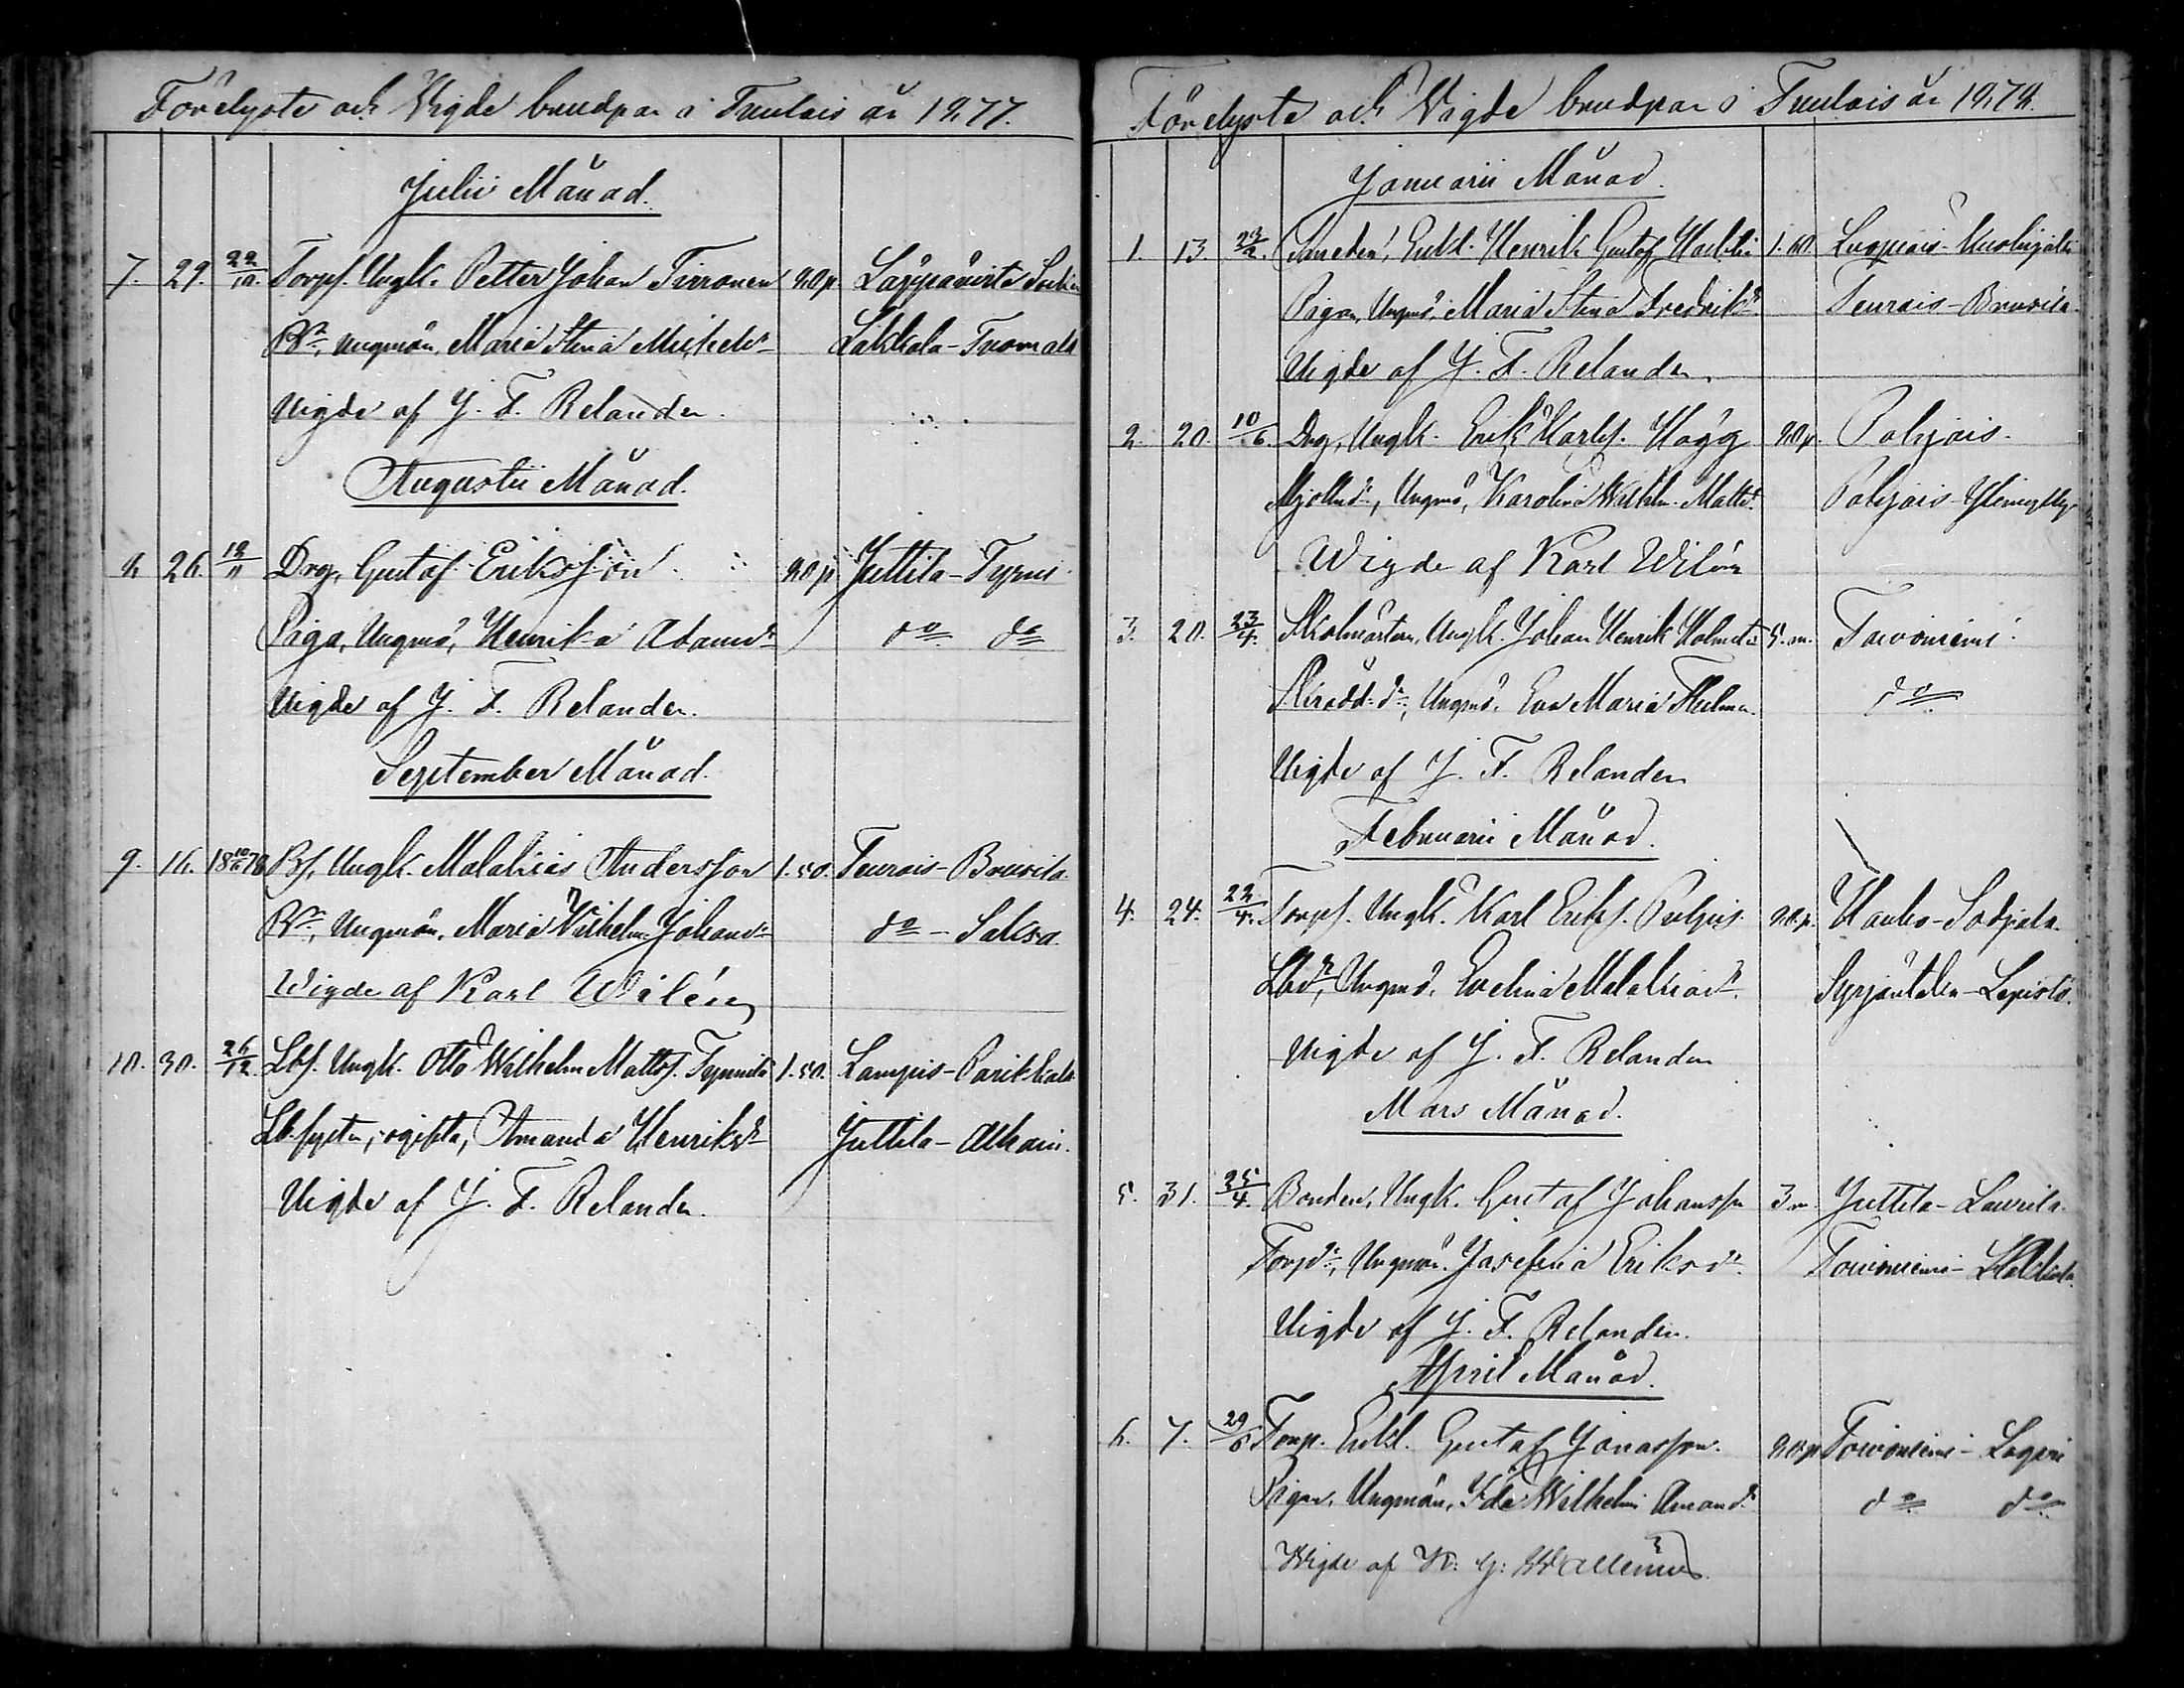 Förelyste och Vigde brudpar i Tuulois år 1877.
Julii Månad.
7. 29. 22/10. Torps. Ungk. Petter Johan Tirronen 80 p. Lappavirta
Bdr. Ungmön, Maria Stina Michelsdr Lakkola - Tuomala
Vigde af J. F. Relander.
Augustii Månad.
8 26. 18/11 Drg. Gustaf Eriksson 80 p Juttila - Tyrni
Piga, Ungmö, Henrika Adamsdr do do
Vigde af J. F. Relander.
September Månad.
9. 16. 18 10/6 78 Bs. Ungk. Malakias Andersson 1.50. Teurois - Bruusila
Bdr. Ungmön, Maria Vilhelm. Johansdr do - Saksa.
Wigde af Karl Wilén
10. 30. 26/12. Lbs. Ungk. Otto Wilhelm Matts. 1.50. Lampis - Parikkala
Lb. syster, ogifta, Amanda Henriksdr Juttila - Alhain.
Vigde af J. F. Relander.
Förelyste och Vigde brudpar i Tuulois år 1878.
Januarii Månad.
1. 13. 23/2. Enkl. Henrik Gustaf 1.60. Luopiois -
Pigan, Ungmö, Maria Stina Fredriksdr Teurois - Bruusila.
Vigde af J. F. Relander.
2. 20. 10/6. Drg, Ungk. Erik Karls. Hägg 80 p. Pohjois.
Ungmö, Karolina Wilhelm. Mattsdr Pohjois -
Wigde af Karl Wilén
3. 20. 23/4. Ungk. Johan Henrik 5. m. Toivoniemi
Skrädd. dr, Ungmö, Eva Maria do
Vigde af J. F. Relander
Februarii Månad.
4. 24. 22/4. Torps. Ungk. Karl Eriks. 80 p. Hauho -
Lbdr, Ungmö, Evelina Malakiasdr. Syrjäntaka - Lepistö.
Vigde af J. F. Relander
Mars Månad.
5. 31. 25/4. Bonden, Ungk. Gustaf Johansson 3 m Juttila - Laurila.
Torpdr, Ungmön, Josefina Eriksdr. Toivoniemi -
Vigde af J. F. Relander.
April Månad.
6. 7. 29/6 Torp. Enkl. Gustaf Jonasson. 80 p Toivoniemi -
Pigan, Ungmön, Ida Wilhelmi Amandr. do do
Wigde af K. G. Wallenius